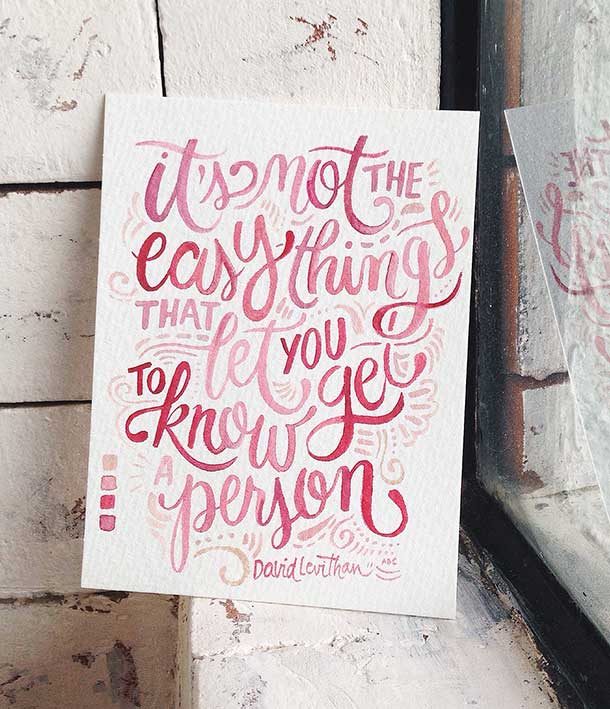 it's not THE
easy things
THAT let YOU
TO know get
A person
David Levithan
ADC